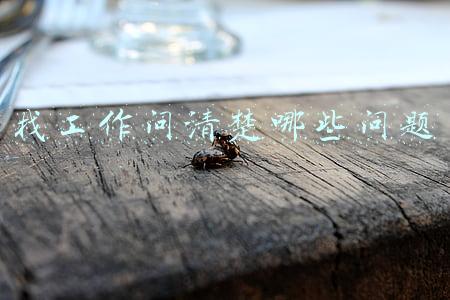 找工作问清楚哪些问题